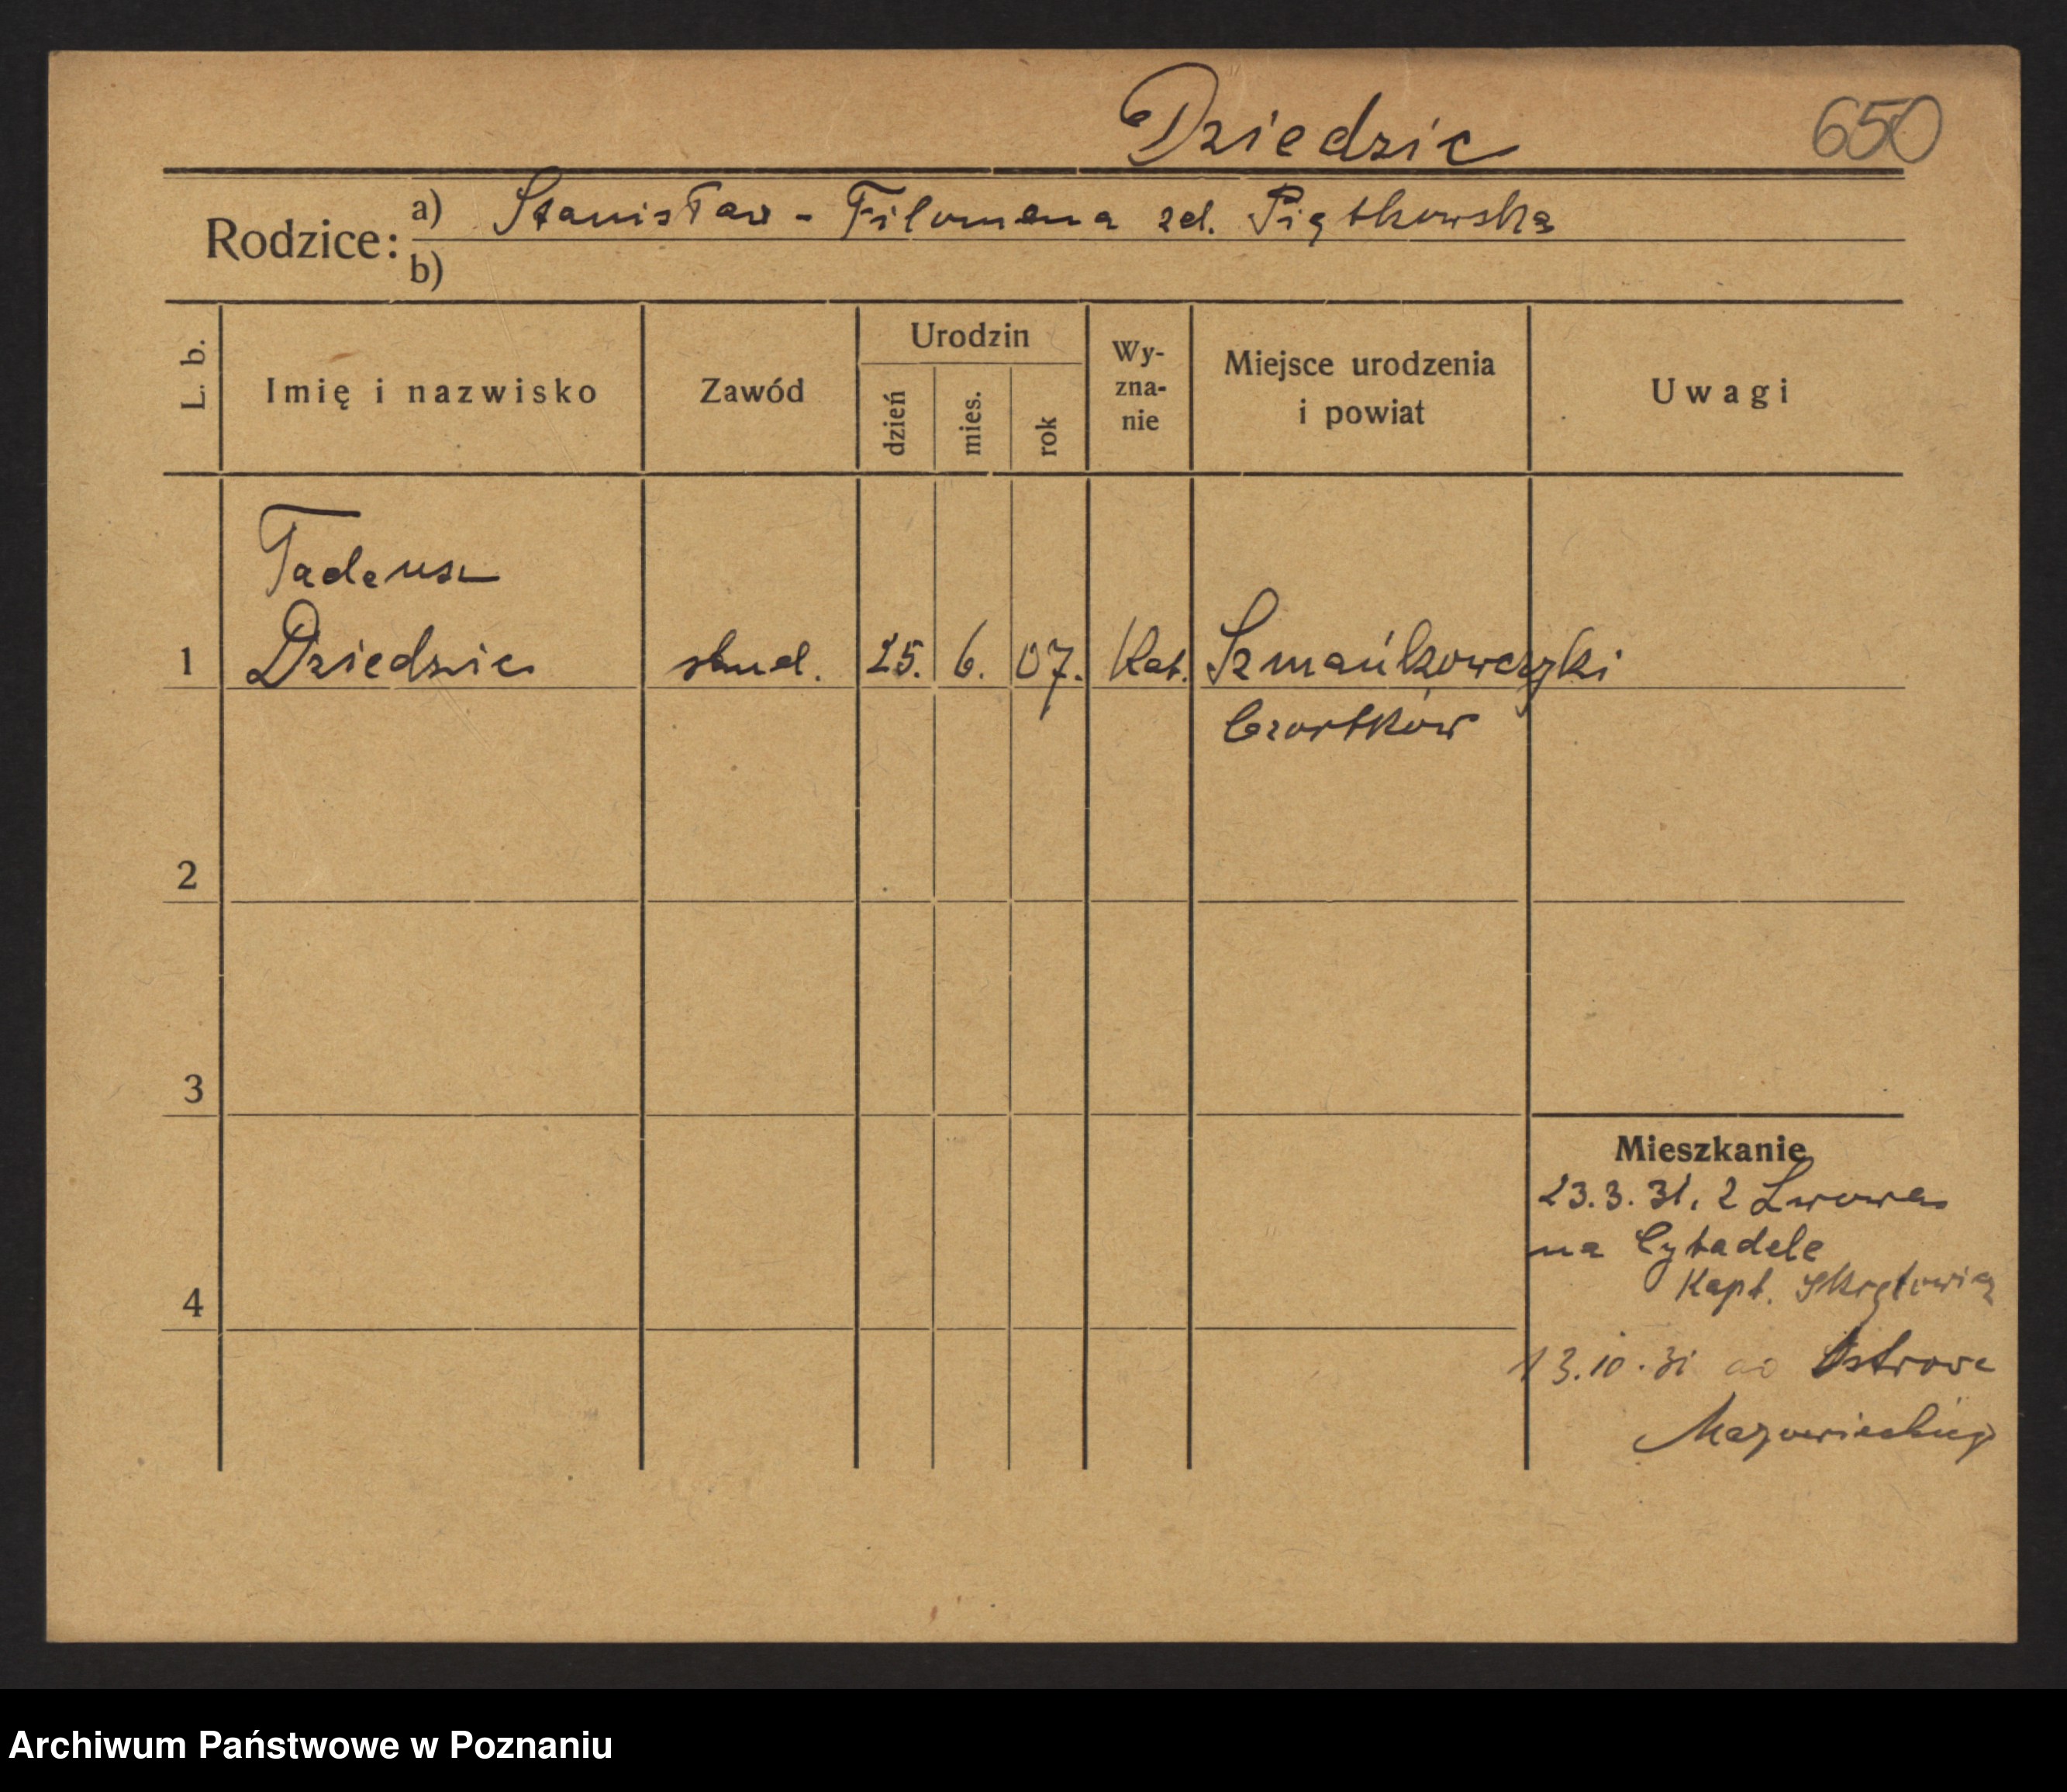 Dziedzic 650
Rodzice: a) Stanisław - Filomena zd. Piątkowska
b)
L. b. Imię i nazwisko Zawód Urodzin dzień mies. rok Wy-zna-nie Miejsce urodzenia i powiat Uwagi
Tadeusz
1 Dziedzic stud. 25. 6. 07. Kat. Szmańkowczyki
Czortków
2
3
Mieszkanie
23.3.31. z Lwowa
na Cytadele
Kapt.
4
13.10.31 do Ostrowa
Mazowieckiego
Archiwum Państwowe w Poznaniu